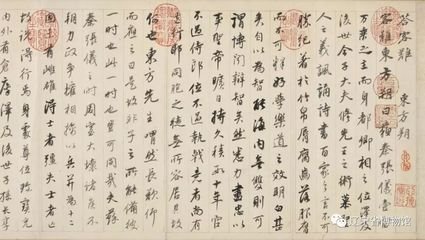 答客難 東方朔
客難東方朔曰蘇秦張儀壹
萬乘之主而身都卿相之位
後世今子大夫修先王之術慕
人之義諷誦詩書百家之言不可
勝紀著於竹帛脣腐齒落服膺
而不可釋好學樂道之效明白甚
矣自以為智能海内無雙則可
謂博聞辯智矣然悉力盡忠以
事聖帝曠日持久積數十年官
不過侍郎位不過執戟意者尚有
遺行邪同胞之徒無所容居其故
何也東方先生喟然長歎仰
而應之曰是故非子之所能備彼
一時也此一時也豈可同哉夫蘇
秦張儀之時周室大壞諸侯不
朝力政爭權相擒以兵并為十二
國未有雌雄得士者強失士者亡
故説得行焉身處尊位珍寶充
内外有倉廩澤及後世子孫長享
辽宁省博物馆